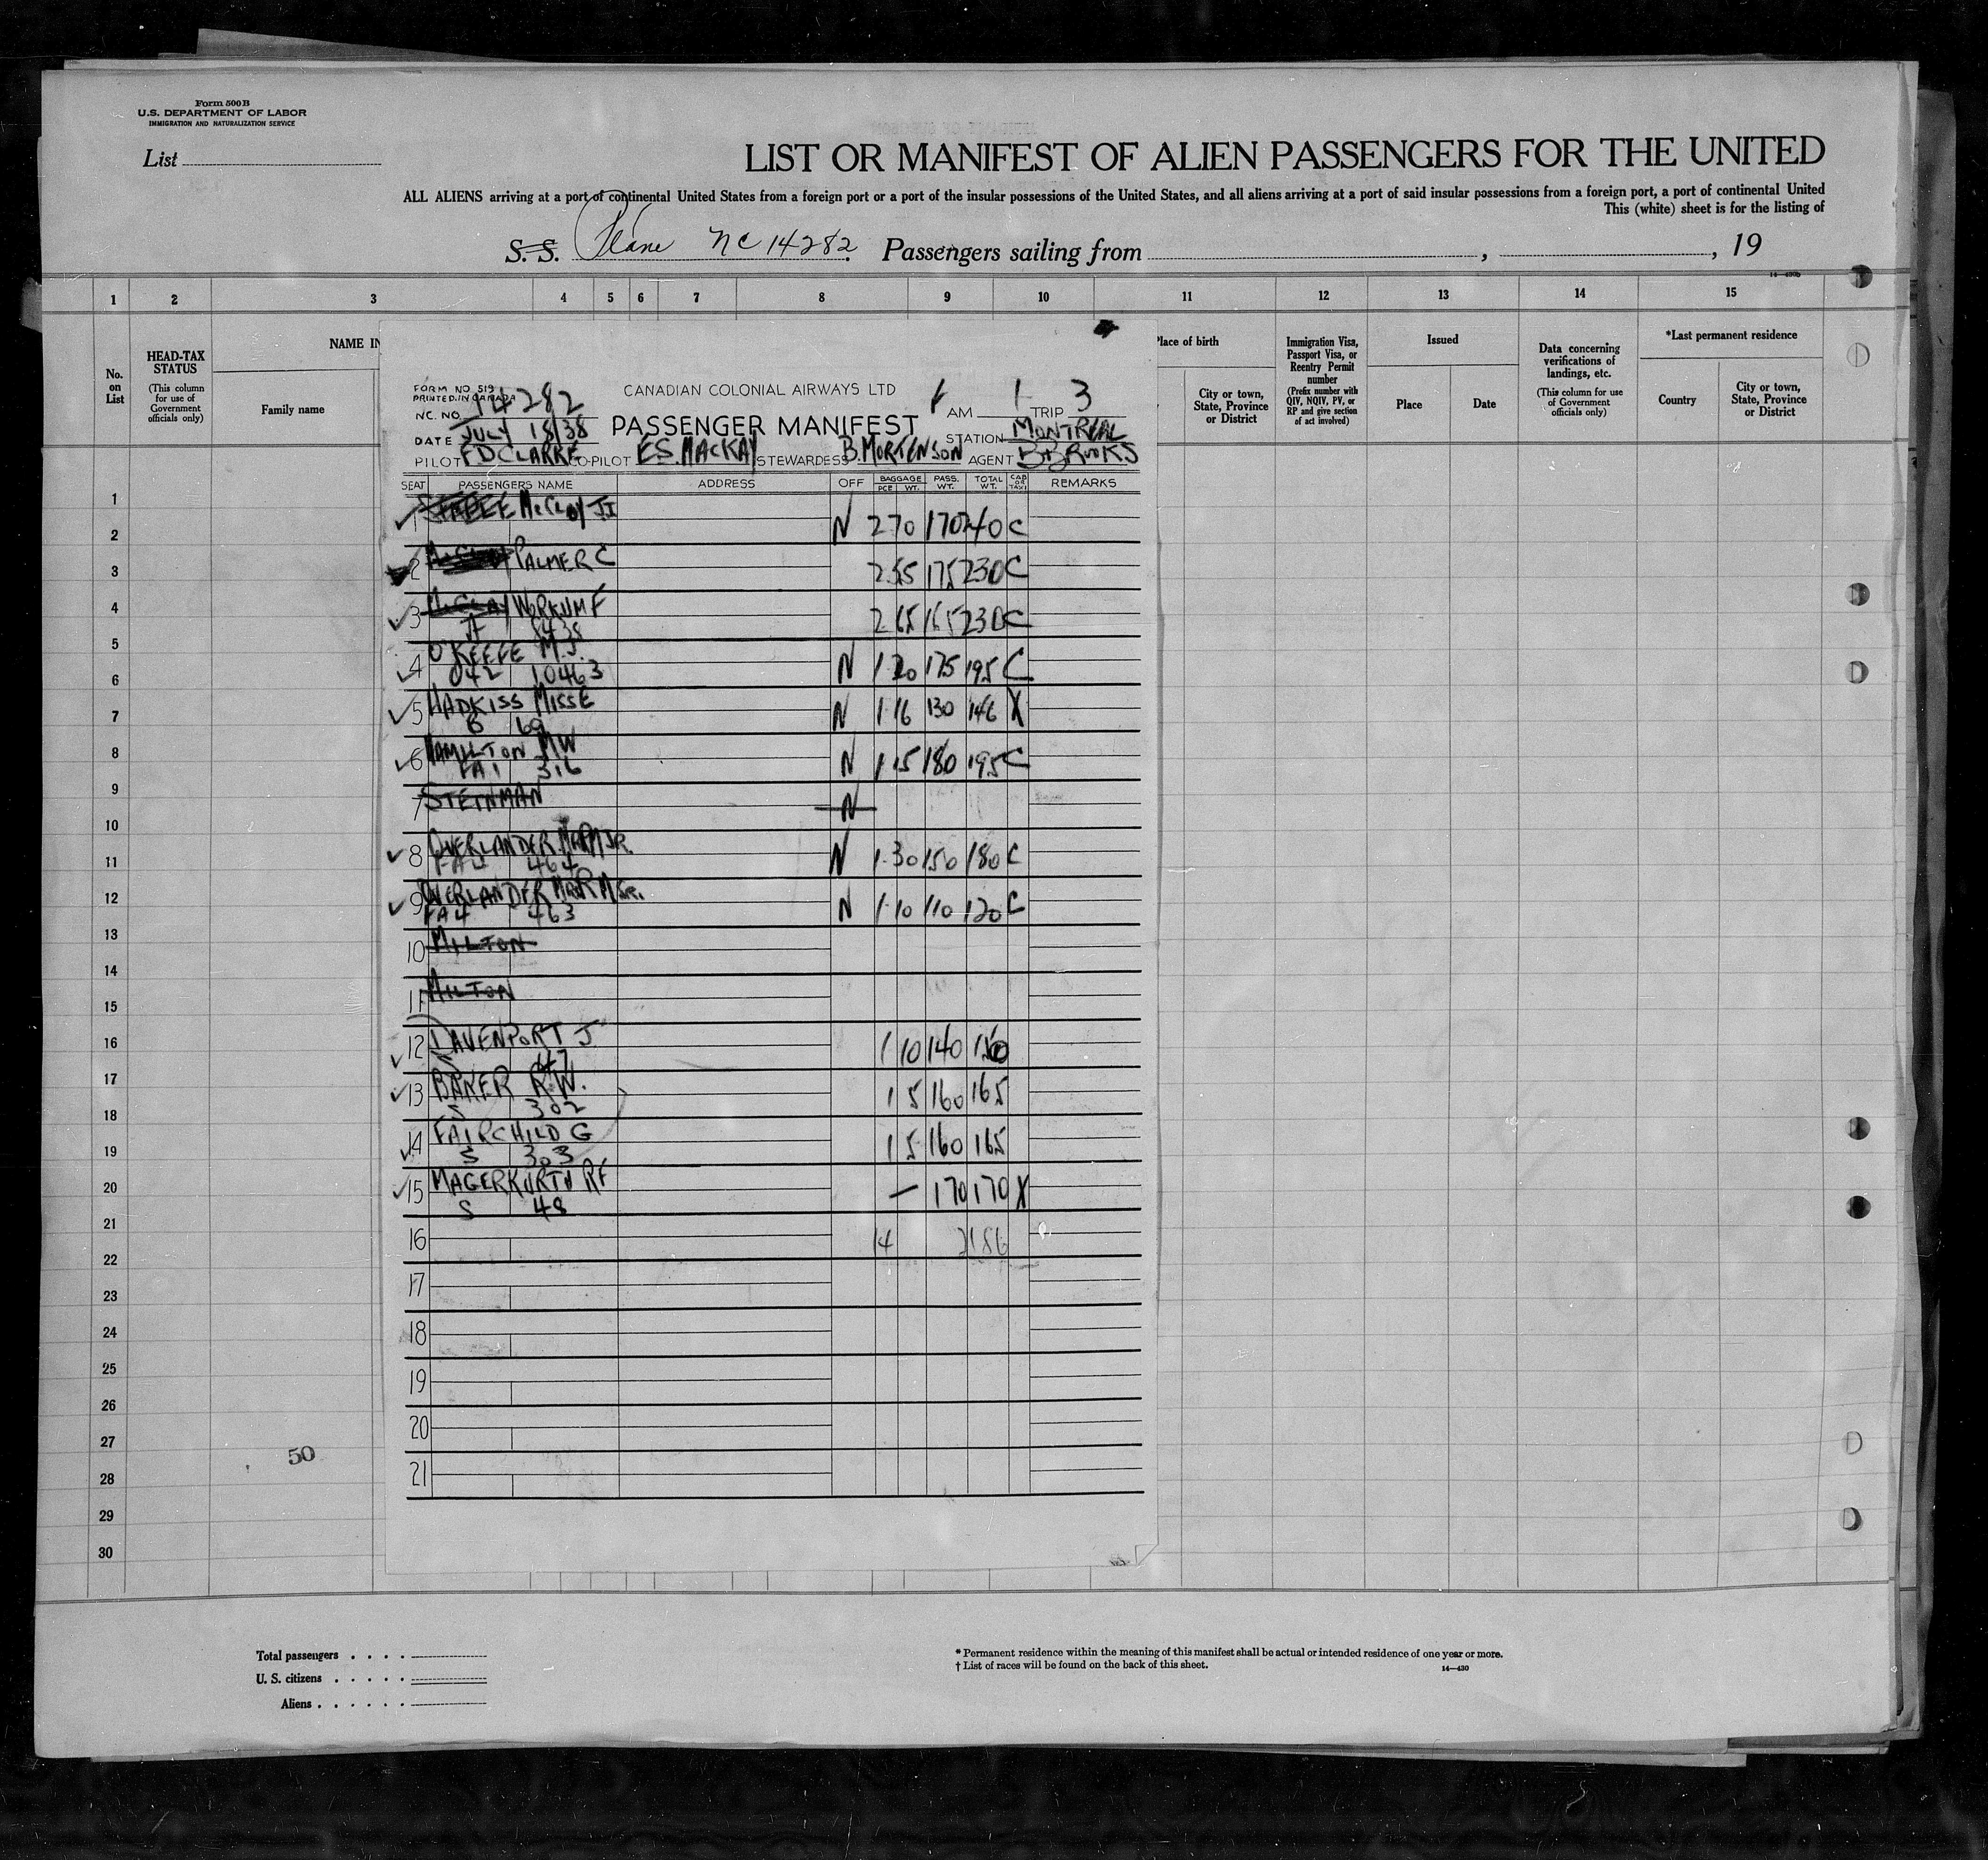 Form 500B
U.S. DEPARTMENT OF LABOR
IMMIGRATION AND NATURALIZATION SERVICE
List
LIST OR MANIFEST OF ALIEN PASSENGERS FOR THE UNITED
ALL ALIENS arriving at a port of continental United States from a foreign port or a port of the insular possessions of the United States, and all aliens arriving at a port of said insular possessions from a foreign port, a port of continental United
This (white) sheet is for the listing of
S. S. Plane NC 14282. Passengers sailing from , , 19
14—430b
1 2 3 4 5 6 7 8 9 10 11 12 13 14 15
No. on List
HEAD-TAX STATUS
(This column for use of Government officials only)
NAME IN
Family name
Place of birth
City or town, State, Province or District
Immigration Visa, Passport Visa, or Reentry Permit number
(Prefix number with QIV, NQIV, PV, or RP and give section of act involved)
Issued
Place Date
Data concerning verifications of landings, etc.
(This column for use of Government officials only)
*Last permanent residence
Country
City or town, State, Province or District
FORM NO. 519
PRINTED IN CANADA
CANADIAN COLONIAL AIRWAYS LTD
NC. NO. 14282
PASSENGER MANIFEST
AM 1 TRIP 3
DATE JULY 18/38
STATION MONTREAL
PILOT F D CLARKE CO-PILOT E S. MACKAY STEWARDESS B. MORTENSON AGENT B BROOKS
SEAT PASSENGERS NAME ADDRESS OFF BAGGAGE PCE WT. PASS. WT. TOTAL WT. CAB OR TAXI REMARKS
1 McCLOY JJ N 2 70 170 240 C
2 PALMER C 2 55 175 230 C
3 McCLAY WORKUM F 2 65 165 230 C
4 O'KEEFE M.J. N 1 20 175 195 C
042 10463
5 HADKISS MISS E N 1 16 130 146 X
B 69
6 HAMILTON MW N 1 15 180 195 C
FA1 316
7 STEINMAN N
8 OVERLANDER MR RM JR. N 1 30 150 180 C
FA4 464
9 OVERLANDER MRS R M SR. N 1 10 110 120 C
FA4 463
10 MILTON
11 MILTON
12 DAVENPORT J 1 10 140 150
S 47
13 BAKER R.W. 1 5 160 165
S 302
14 FAIRCHILD G 1 5 160 165
S 303
15 MAGERKURTH RF — 170 170 X
S 48
16 14 2186
17
18
19
20
21
1
2
3
4
5
6
7
8
9
10
11
12
13
14
15
16
17
18
19
20
21
22
23
24
25
26
27
28
29
30
50
Total passengers
U. S. citizens
Aliens
* Permanent residence within the meaning of this manifest shall be actual or intended residence of one year or more.
† List of races will be found on the back of this sheet.
14—430